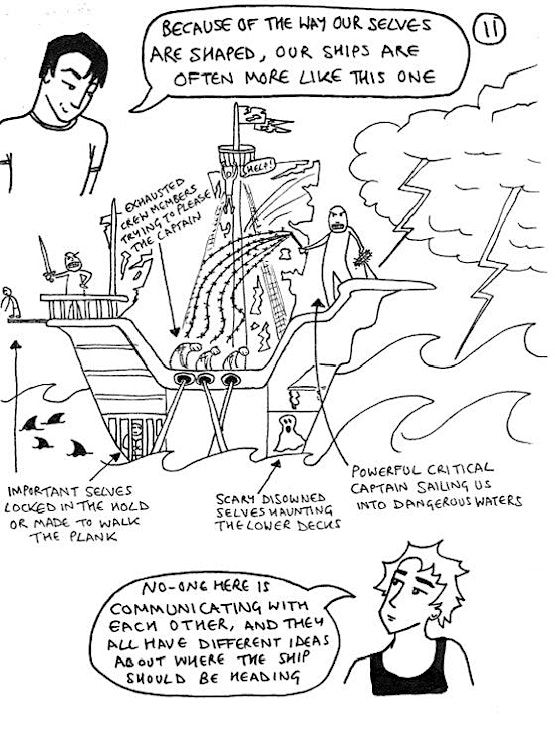 BECAUSE OF THE WAY OUR SELVES
ARE SHAPED, OUR SHIPS ARE
OFTEN MORE LIKE THIS ONE
11
HELP!
EXHAUSTED
CREW MEMBERS
TRYING TO PLEASE
THE CAPTAIN
IMPORTANT SELVES
LOCKED IN THE HOLD
OR MADE TO WALK
THE PLANK
SCARY DISOWNED
SELVES HAUNTING
THE LOWER DECKS
POWERFUL CRITICAL
CAPTAIN SAILING US
INTO DANGEROUS WATERS
NO-ONE HERE IS
COMMUNICATING WITH
EACH OTHER, AND THEY
ALL HAVE DIFFERENT IDEAS
ABOUT WHERE THE SHIP
SHOULD BE HEADING